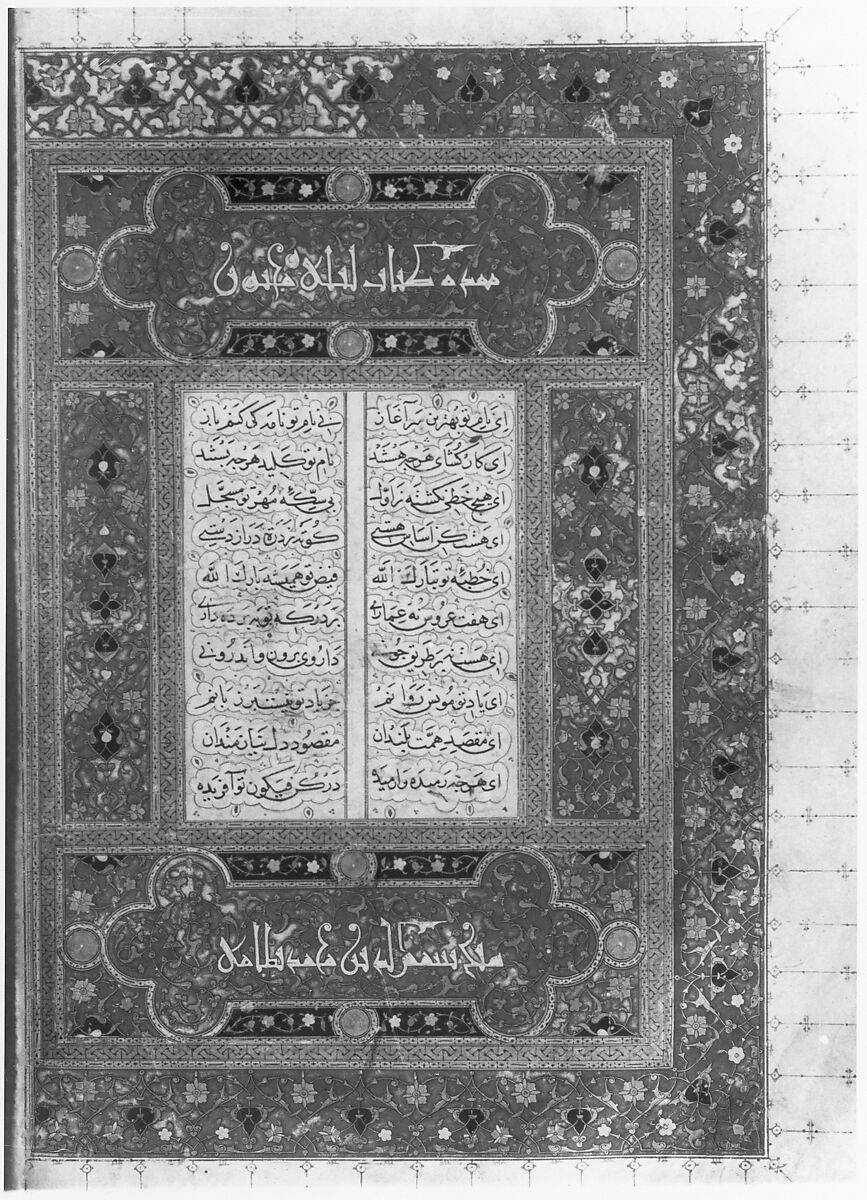 هذه کتاب لیلی مجنون
ای نام تو بهترین سرآغاز بی نام تو نامه کی کنم باز
ای کارگشای هرچه هستند نام تو کلید هرچه بستند
ای هیچ خطی نگشته ز اول بی سکه مهر تو مسجل
ای هست کن اساس هستی کوته ز درت درازدستی
ای خطبه تو تبارک الله فیض تو همیشه بارک الله
ای هفت عروس نه عماری بر درگه تو بپرده داری
ای هست نه بر طریق چونی برون و اندرونی
ای یاد تو مونس روانم جز یاد تو نیست بر زبانم
ای مقصد همت بلندان مقصود دل نیازمندان
ای هرچه رمیده وارمیده در کن فیکون تو آفریده
بن محمد نظامی